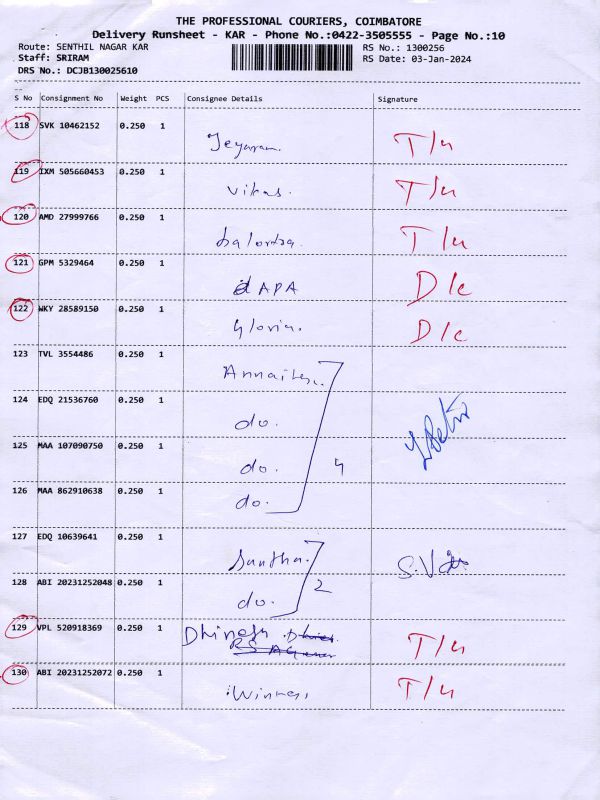 THE PROFESSIONAL COURIERS, COIMBATORE
Delivery Runsheet - KAR - Phone No.:0422-3505555 - Page No.:10
Route: SENTHIL NAGAR KAR RS No.: 1300256
Staff: SRIRAM RS Date: 03-Jan-2024
DRS No.: DCJB130025610
S No Consignment No Weight PCS Consignee Details Signature
118 SVK 10462152 0.250 1 Jeyaram. T/u
119 IXM 505660453 0.250 1 Vikas. T/u
120 AMD 27999766 0.250 1 T/u
121 GPM 5329464 0.250 1 dAPA D/c
122 WKY 28589150 0.250 1 Gloria. D/c
123 TVL 3554486 0.250 1
124 EDQ 21536760 0.250 1 do.
125 MAA 107090750 0.250 1 do. 4
126 MAA 862910638 0.250 1 do.
127 EDQ 10639641 0.250 1 Santha.
128 ABI 20231252048 0.250 1 do. 2
129 VPL 520918369 0.250 1 Dhinesh T/u
130 ABI 20231252072 0.250 1 Winners T/u